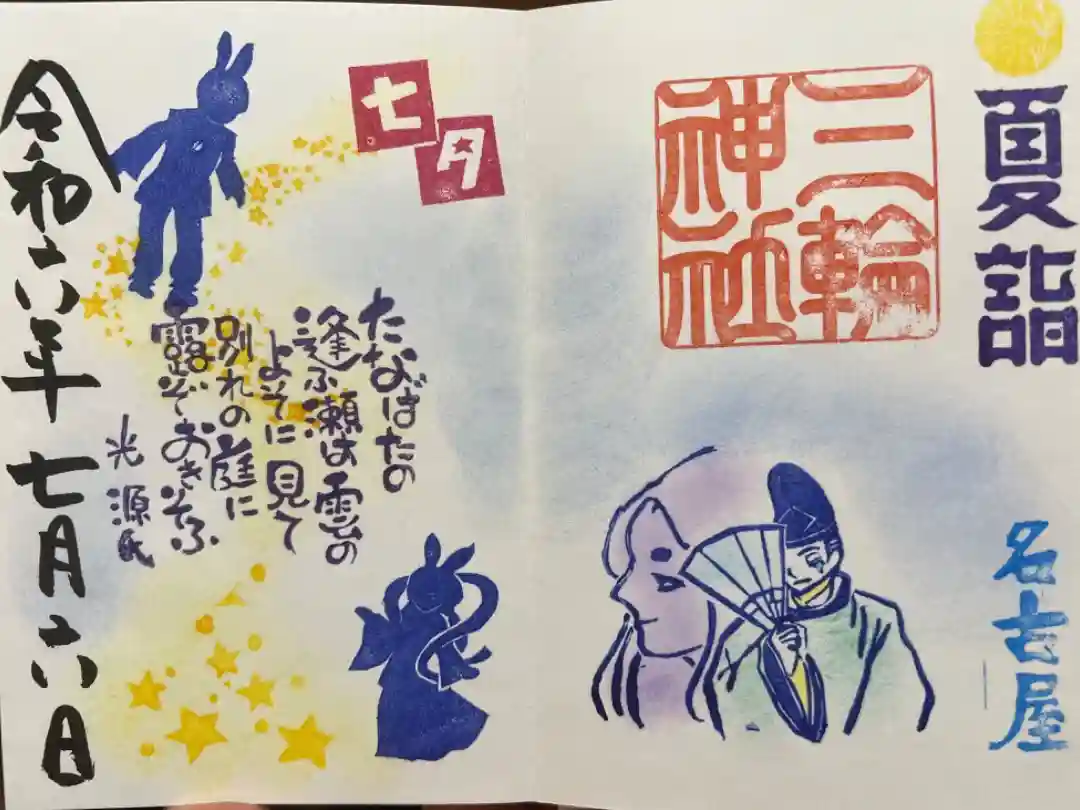 夏詣
三輪
神社
名古屋
七夕
たなばたの
逢ふ瀬は雲の
よそに見て
別れの庭に
露ぞおきそふ
光源氏
令和六年七月六日